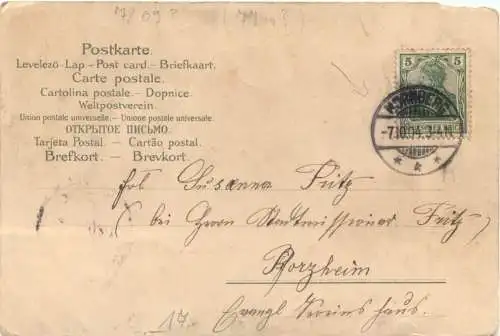 Postkarte.
Levelező-Lap. – Post card. – Briefkaart.
Carte postale.
Cartolina postale. – Dopnice.
Weltpostverein.
Union postale universelle. – Unione postale universale.
ОТКРЫТОЕ ПИСЬМО.
Tarjeta Postal. – Cartão postal.
Brefkort. – Brevkort.
5 5
NÜRNBERG
-7.10.04. 3-4 N.
Frl. Susanna Fritz
(bei Herrn Stadtmissionar Fritz)
Pforzheim
Evangl. Vereinshaus.
17.